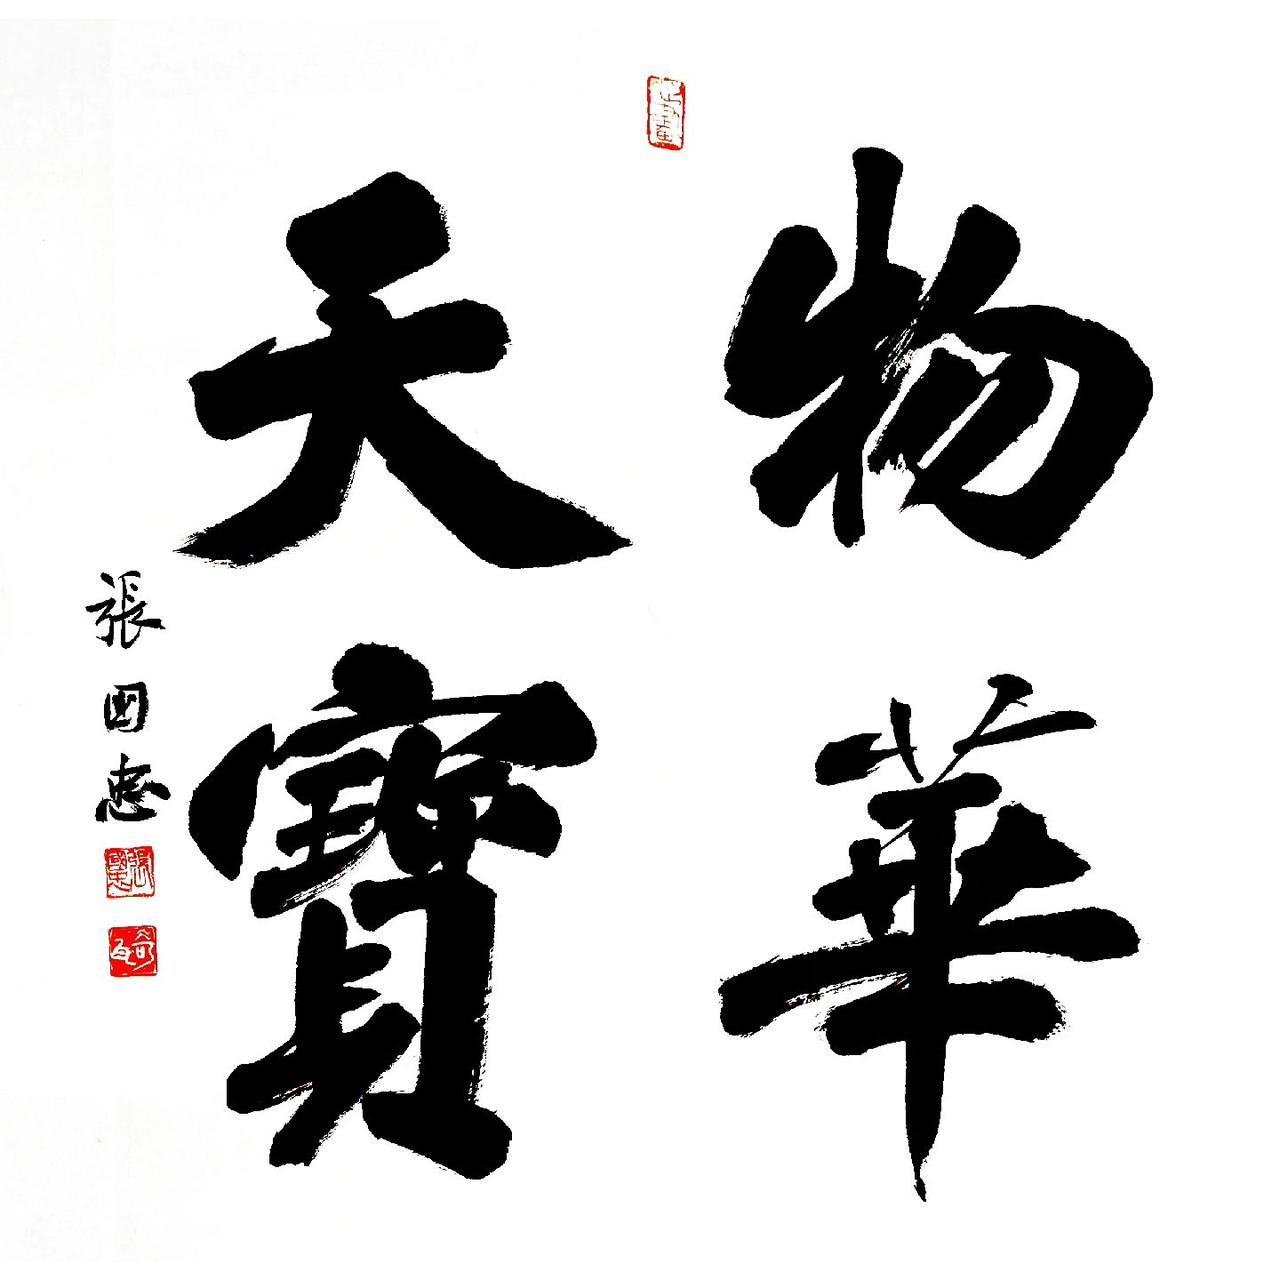 物華
天寶
張國忠